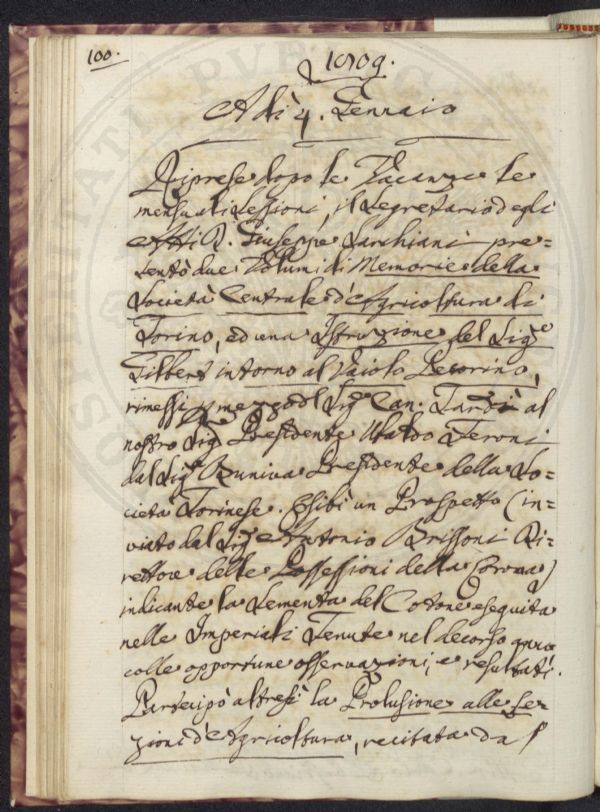 100.
1809.
Adì 4. Gennaio
Riprese dopo le Vacanze le
mensuali Lessioni, il Segretario degli
Atti D. Giuseppe Sarchiani pre=
sentò due Volumi di Memorie della
Società Centrale d'Agricoltura di
Torino, ed una Istruzione del Sig.e
Gilbert intorno al Vaiolo Pecorino,
rimessi p mezzo del Sig. Can. Zardi al
nostro Sig. Presidente Ubaldo Feroni
dal Sig. Buniva Presidente della So=
cietà Torinese. Esibì un Prospetto (in=
viato dal Sig. Antonio Brissoni Di=
rettore delle Possessioni della Corona)
indicante la Sementa del Cotone eseguita
nelle Imperiali Tenute nel decorso anno
colle opportune osservazioni, e resultati.
Partecipò altresì la Prolusione alle Le=
zioni d'Agricoltura, recitata dal